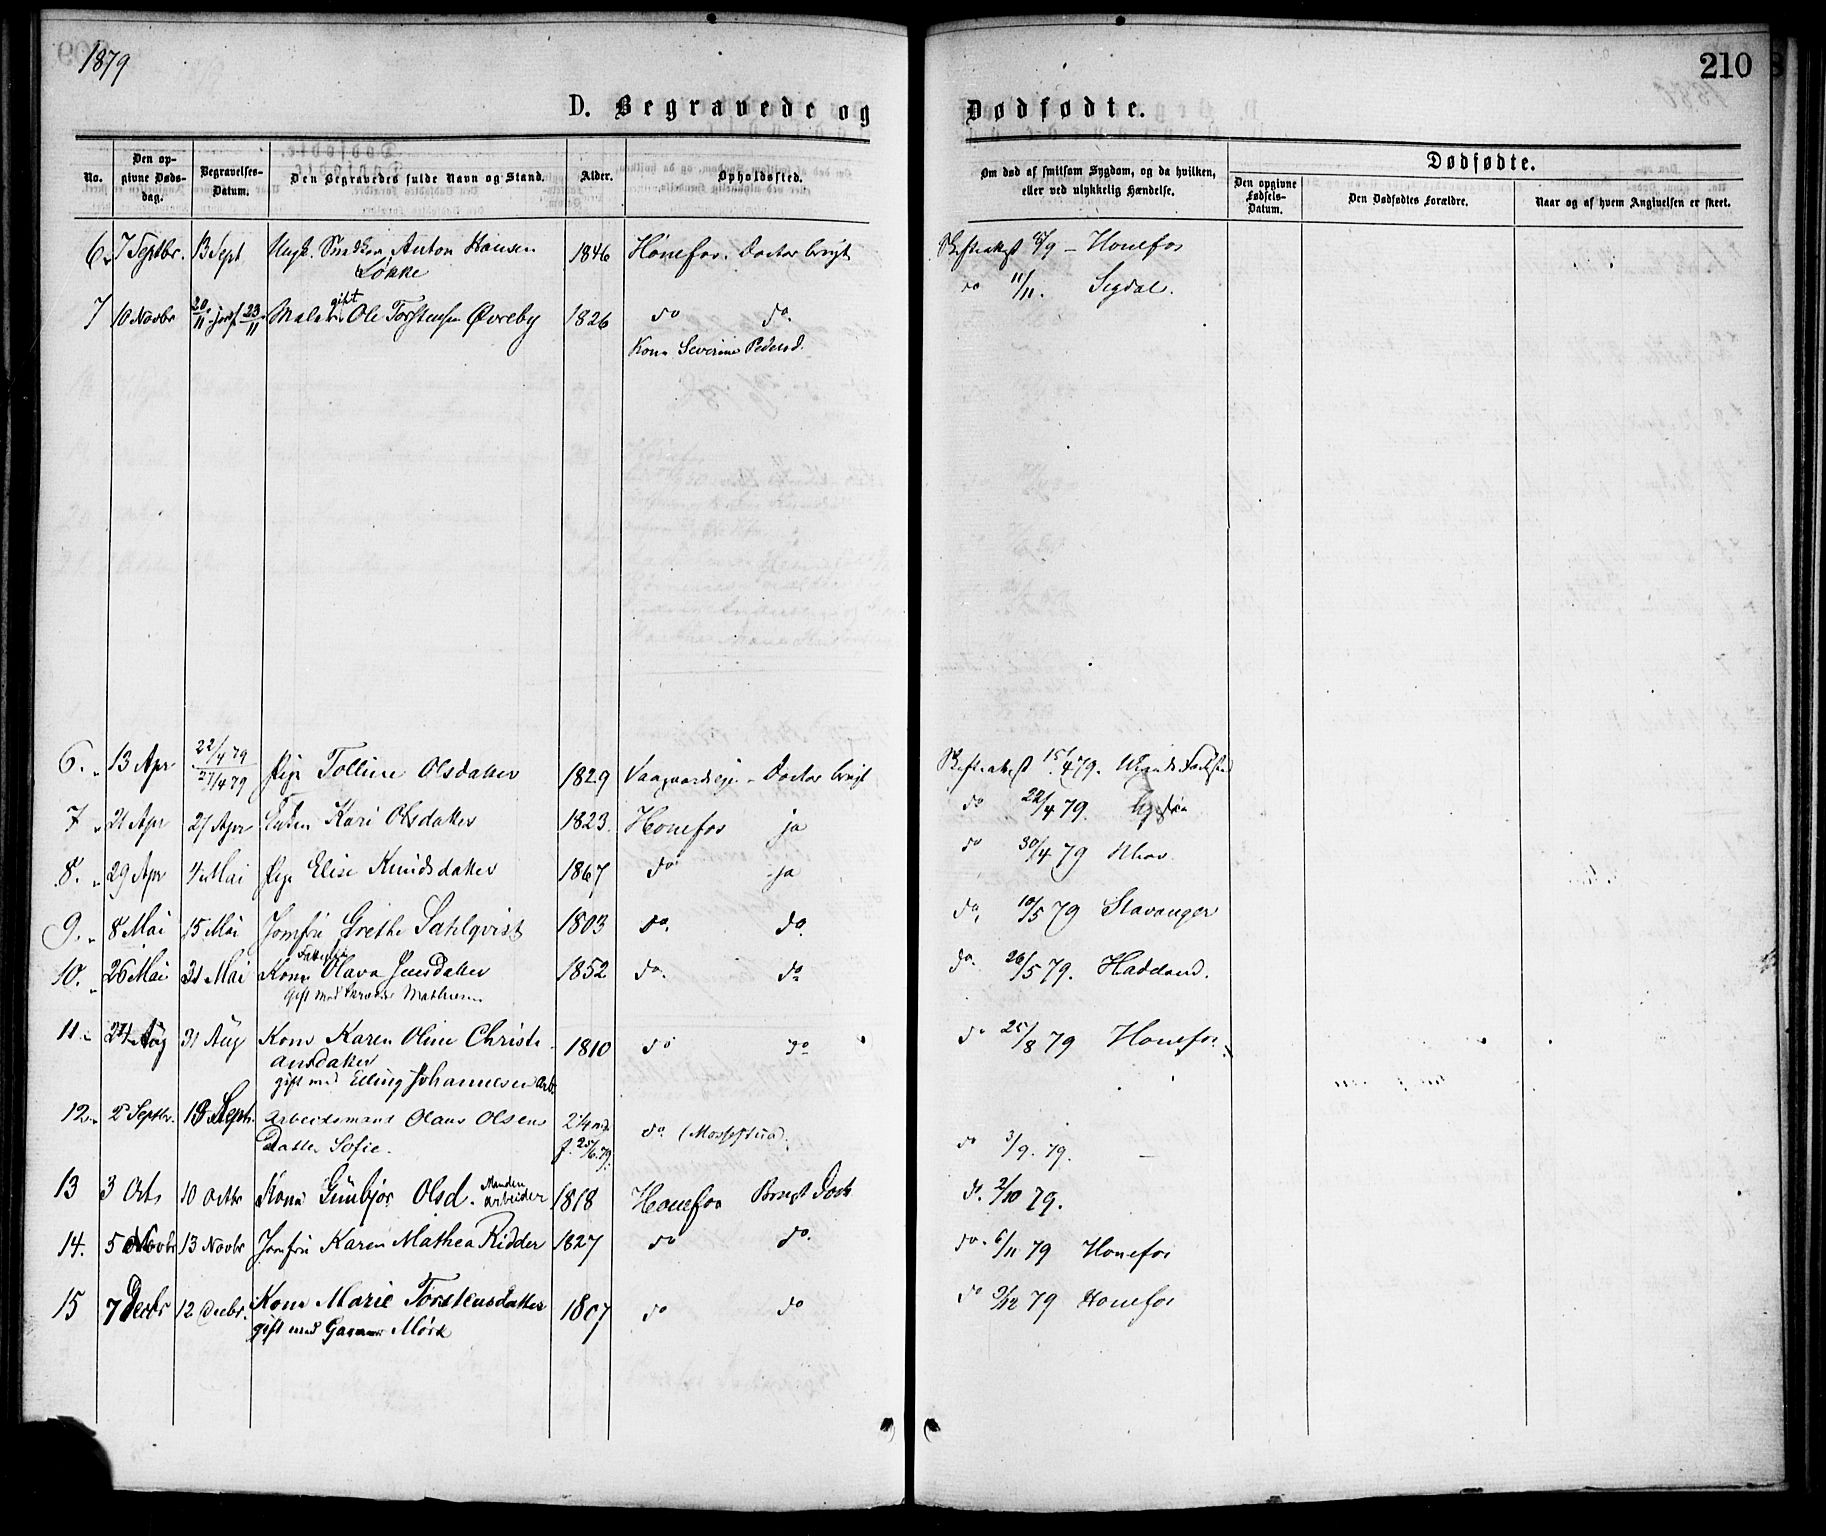 1879
210
D. Begravede og Dødfødte.
No.
Den opgivne Døds-dag.
Begravelses-Datum.
Den Begravedes fulde Navn og Stand.
Alder.
Opholdssted.
Om død af smitsom Sygdom, og da hvilken, eller ved ulykkelig Hændelse.
Dødfødte.
Den opgivne Fødsels-Datum.
Den Dødfødtes Forældre.
Naar og af hvem Angivelsen er skeet.
6 7 Septbr. 13 Sept Ungk. Anton Hansen 1846 Hønefos. Doctor brugt Skifteattest 8/9 – Honefos
Løkke
do 11/11. Sigdal.
7 10 Novbr 20/11 jordf 23/11 Maler gift Ole Torstensen Øvreby 1826 do do.
Kone Severine Pedersd.
6. 13 Apr 22/4 79 27/4 79 Pige Tolline Olsdatter 1829 Doctor brugt Skifteattest 15/4 79.
7 21 Apr 27 Apr Enken Kari Olsdatter 1823. Honefos ja do 22/4 79.
8. 29 Apr 4 Mai Pige Elise Knudsdatter 1867 do ja do 30/4 79
9. 8 Mai 15 Mai Jomfru Grethe Sahlqvist 1803 do. do. do, 10/5 79 Stavanger
10. 26 Mai 31 Mai Kone Olava Jensdatter 1852 do. do do. 26/5 79. Hadeland.
Gift med Mathisen
11. 24 Aug 31 Aug Kone Karen Oline Christi- 1810 do do do 25/8 79 Honefos
ansdatter
gift med Elling Johannesen Arb.
12. 2 Septbr. 13 Septr. Arbeidsmand Olaus Olsens 2 1/4 md f. 25/6 79. do. (Mossestua). do 3/9. 79.
Datter Sofie.
13 3 Octb 10 Octbr Kone Gunbjør Olsd. Manden Arbeider 1818 Honefos Brugt Doct do. 2/10 79.
14. 5 Novbr 13 Novbr Jomfru Karen Mathea Ridder 1827 do do. do. 6/11 79 Honefos
15 7 Decbr 12 Decbr. Kone Marie Torstensdatter 1807 do do do 9/12 79 Honefos
gift med Garver Mørk